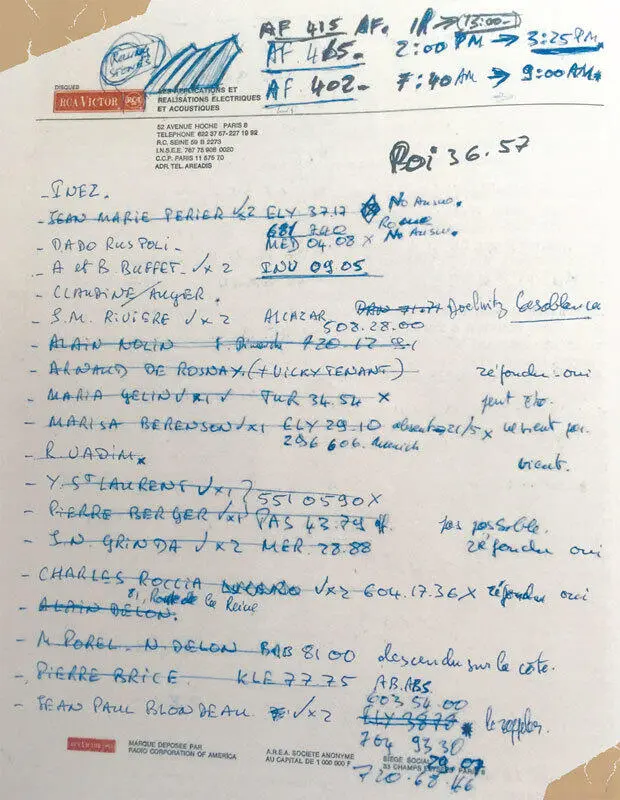 AF 415 AF. 1R → (13:00-)
Rolling Stones
AF. 465. 2:00 PM → 3:25 PM.
AF 402- 7:40 AM → 9:00 AM.
DISQUES
RCA VICTOR RCA
LES APPLICATIONS ET
REALISATIONS ELECTRIQUES
ET ACOUSTIQUES
52 AVENUE HOCHE PARIS 8
TELEPHONE 622 37 57-227 19 92
R.C. SEINE 59 B 2273
I.N.S.E.E. 767 75 908 0020
C.C.P. PARIS 11 575 70
ADR. TEL. AREADIS
Poi 36.57
- INEZ.
- JEAN MARIE PERIER √x2 ELY 37.17 No Answ.
681 740 Rome
- DADO RUSPOLI- MED 04.08 x No Answ.
- A et B. BUFFET- √x2 INV 09.05
- CLAUDINE AUGER.
- J.M. RIVIÈRE √x2 ALCAZAR DAN 71.71 Casablanca
508.28.00
- ALAIN NOLIN 720.12
- ARNAUD DE ROSNAY (+ VICKY TENANT) répondu oui
- MARIA GELIN √x1 √ TUR 34.54 x peut être.
- MARISA BERENSON √x1 ELY 29.10 absente 21/5 x revient pas
296 606. Munich
- R. VADIM. vient.
- Y. ST LAURENT √x1 } 551 0590 X
- PIERRE BERGER √x1 PAS 43.79 pas possible.
- J.N. GRINDA √x2 MER 28.88 répondu oui
- CHARLES ROCCIA √x2 604.17.36 X répondu oui
81, Route de la Reine
- ALAIN DELON.
- M. POREL. N. DELON BAB 81 00 descendu sur la côte.
- PIERRE BRICE. KLE 77.75 AB. ABS.
603 54.00
- JEAN PAUL BLONDEAU. √x2 ELY 3878 * le rappeler.
704 93 30
RCA VICTOR
MARQUE DEPOSEE PAR
RADIO CORPORATION OF AMERICA
A.R.E.A. SOCIETE ANONYME
AU CAPITAL DE 1 000 000 F
SIEGE SOCIAL 29.07
33 CHAMPS ELYSEES PARIS 8
720.68.46